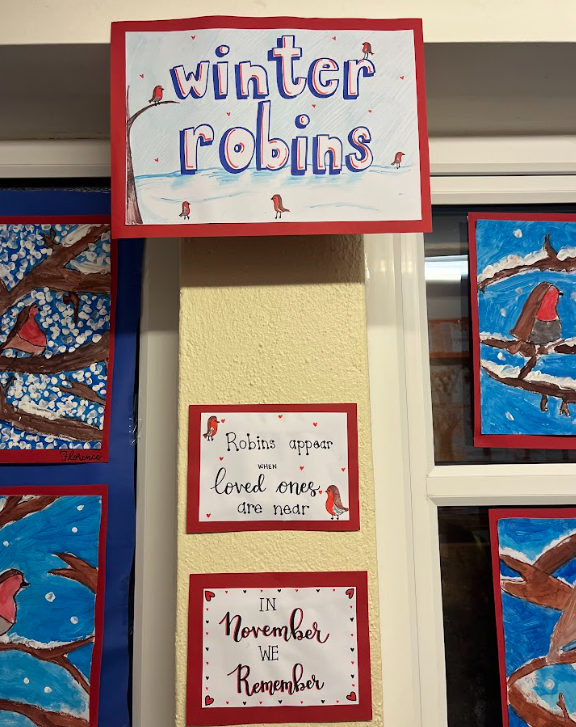 winter
robins
Robins appear
WHEN
loved ones
are near
Florence
IN
November
WE
Remember